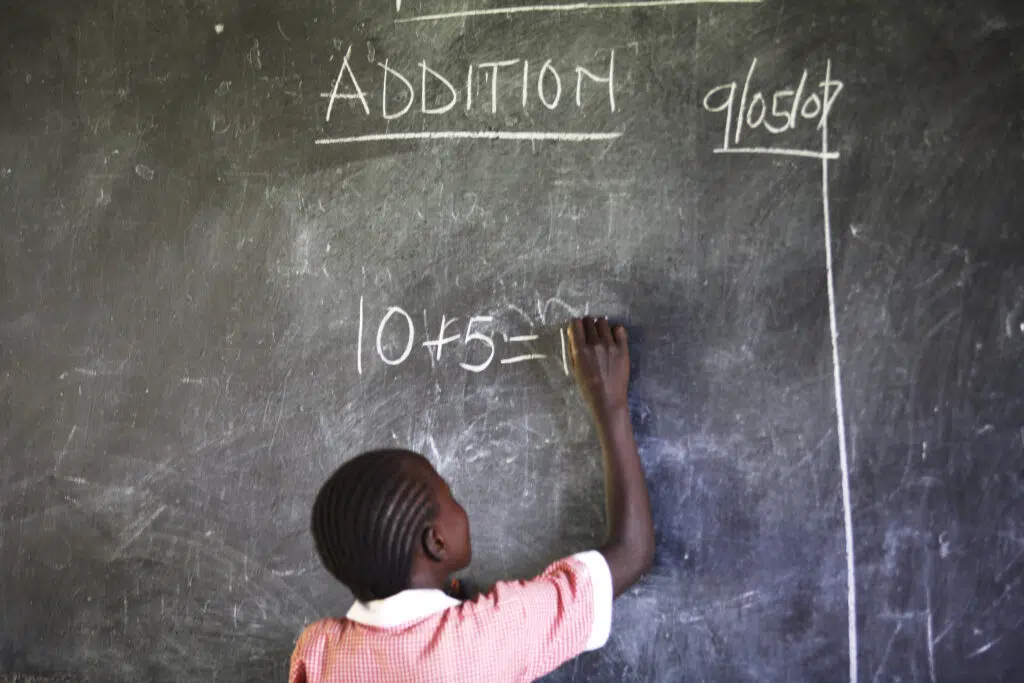 ADDITION
9/05/07
10+5=1